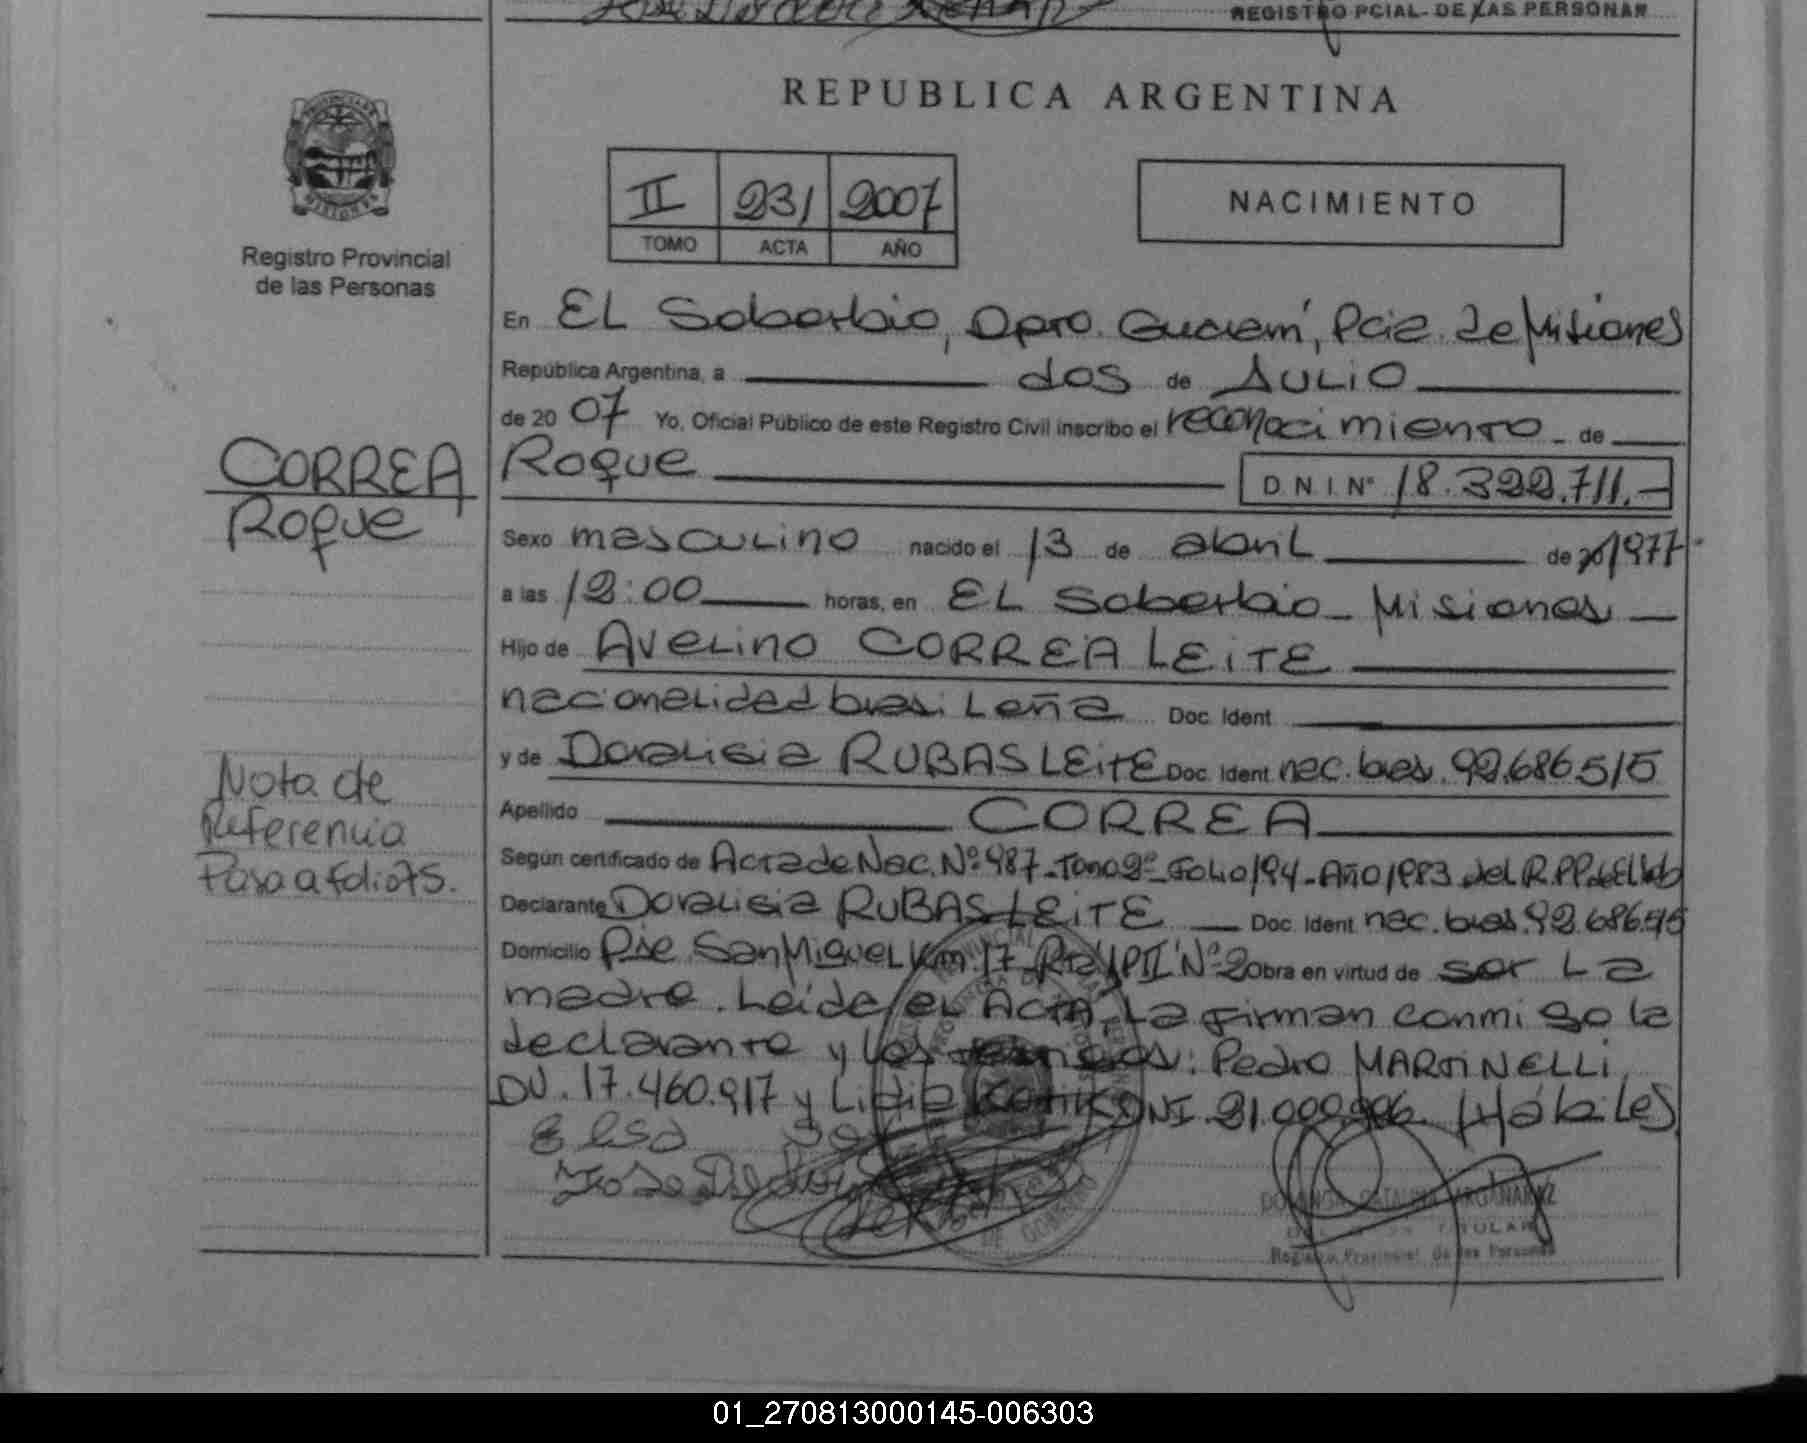 REGISTRO PCIAL. DE LAS PERSONAS
REPUBLICA ARGENTINA
II 231 2007
TOMO ACTA AÑO
NACIMIENTO
Registro Provincial
de las Personas
En EL Soberbio, Dpto. Guaraní, Pcia. de Misiones
República Argentina, a dos de JULIO
de 2007 Yo, Oficial Público de este Registro Civil inscribo el reconocimiento de
CORREA
Roque
Roque D.N.I. Nº 18.322.711.-
Sexo masculino nacido el 13 de abril de 1977
a las 12:00 horas, en EL Soberbio - Misiones
Hijo de Avelino CORREA LEITE
nacionalidad brasileña Doc. Ident.
y de Doralisia RUBAS LEITE Doc. Ident. nac. bras. 92.686.515
Apellido CORREA
Nota de
Referencia
Pasa a folio 75.
Según certificado de Acta de Nac. Nº 487 - Tomo 2º - Folio 194 - Año 1983 del R.P.P. de El
Declarante Doralisia RUBAS LEITE Doc. Ident. nac. bras. 92.686.515
Domicilio Pje San Miguel Km. 17 Nº 2 Obra en virtud de ser la
madre. Leída el Acta, la firman conmigo la
declarante y los testigos: Pedro MARTINELLI
DNI. 17.460.917 y Lidia DNI 21.000.906. Hábiles
REGISTRO Provincial de las Personas
TITULAR
01_270813000145-006303